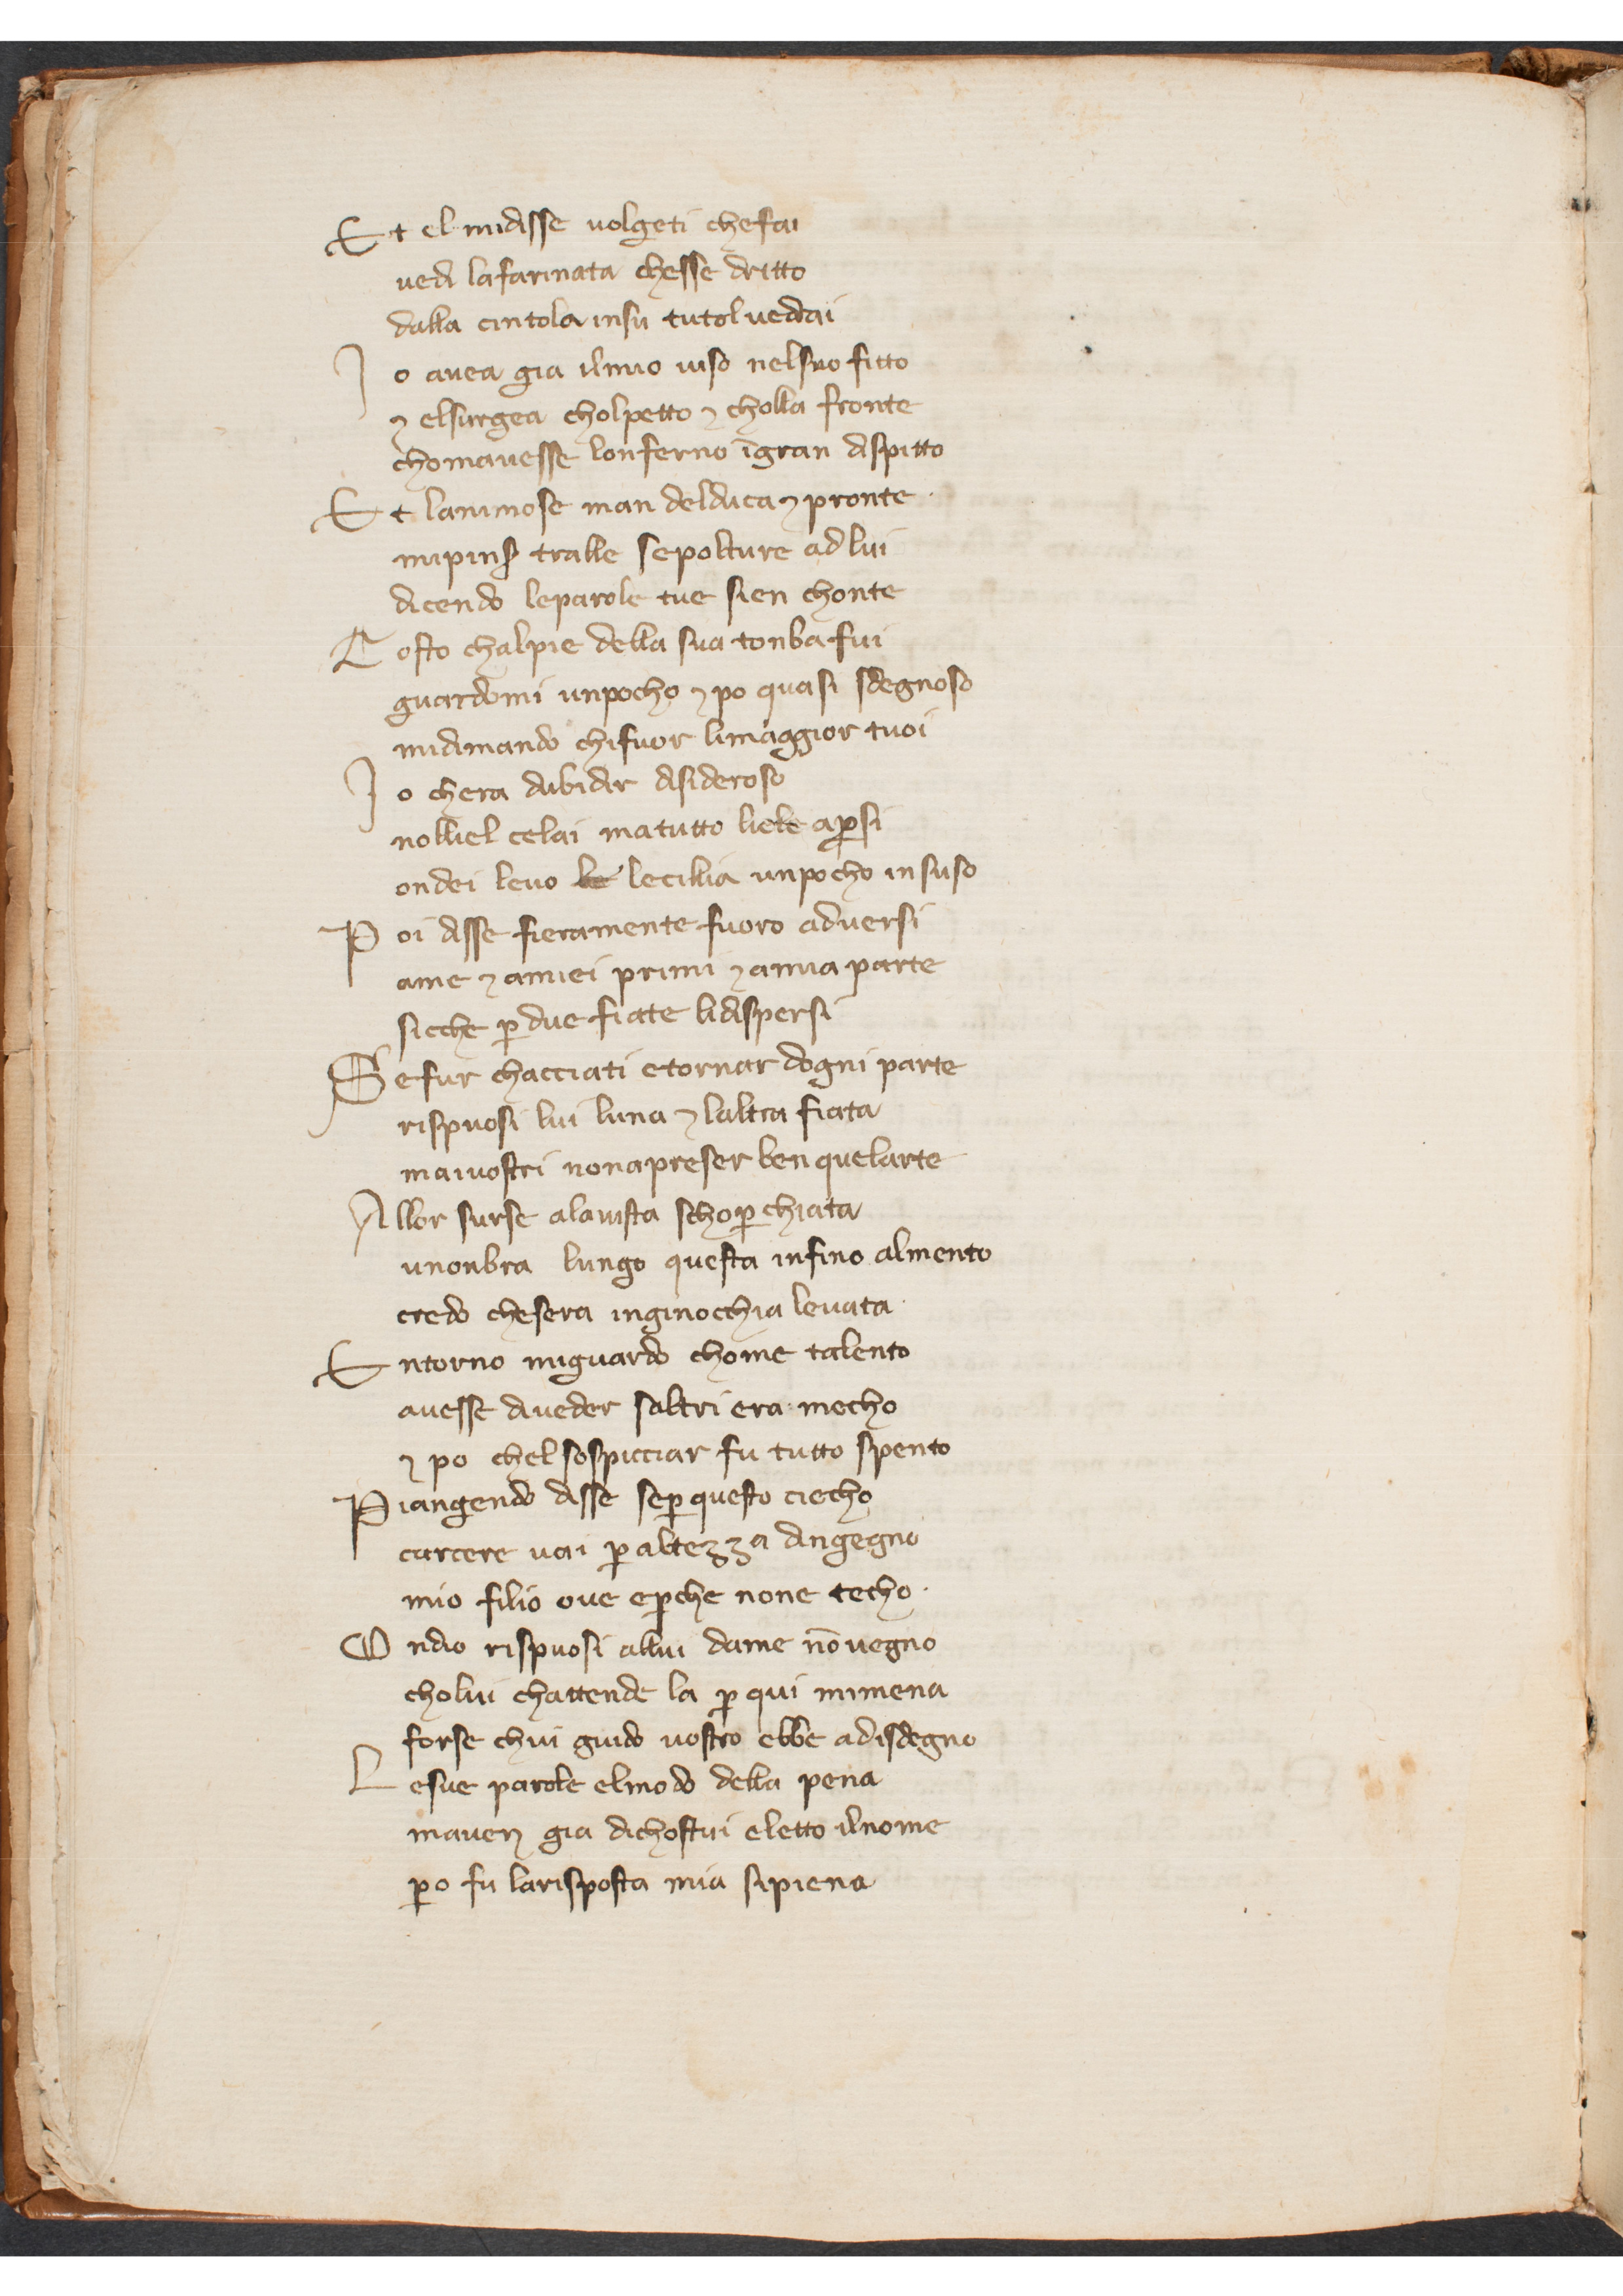 Et el midisse volgeti chefai
vedi lafarinata chesse dritto
dalla cintola insu tutol vedrai
Io avea gia ilmio viso nelsuo fitto
⁊ elsurgea cholpetto ⁊ cholla fronte
chomavesse lonferno ī gran dispitto
Et lanimose man delduca ⁊ pronte
mipinser tralle sepolture ad lui
dicendo leparole tue sien chonte
Tosto chalpie della sua tonba fui
guardomi unpocho ⁊ po quasi sdegnoso
midimando chi fuor limaggior tuoi
Io chera dubidir disideroso
nolliel celai matutto liele aꝑsi
ondei levo lecillia unpocho insuso
Poi disse fieramente fuoro adversi
ame ⁊ amiei primi ⁊ amia parte
sicche ꝑ due fiate lidispersi
Sefur chacciati etornar dogni parte
rispuosi lui luna ⁊ laltra fiata
maivostri nonapreser ben quelarte
Allor surse alavista schoꝑchiata
unonbra lungo questa infino almento
credo chesera inginocchia levata
Entorno miguardo chome talento
avesse diveder saltri era mecho
⁊ po chel sospicciar fu tutto spento
Piangendo disse seꝑ questo ciecho
carcere vai ꝑ altezza dingegno
mio filio ove eꝑche none techo
Ondio rispuosi allui dame nō vegno
cholui chattende la ꝑ qui mimena
forse chui guido vostro ebbe adisdegno
Lesue parole elmodo della pena
maven gia dichostui eletto ilnome
ꝑo fu larisposta mia sipiena